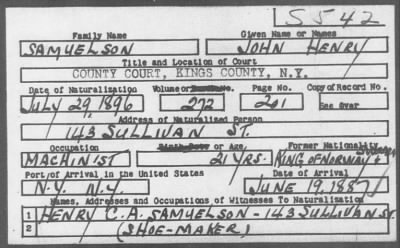 S 542
Family Name Given Name or Names
SAMUELSON JOHN HENRY
Title and Location of Court
COUNTY COURT, KINGS COUNTY, N.Y.
Date of Naturalization Volume or Page No. Copy of Record No.
JULY 29 1896 272 201 See Over
Address of Naturalized Person
143 SULLIVAN ST.
Occupation Birth Date or Age. Former Nationality
MACHINIST 21 YRS. KING OF NORWAY & SWEDEN
Port of Arrival in the United States Date of Arrival
N.Y. N.Y. JUNE 19, 1887
Names, Addresses and Occupations of Witnesses To Naturalization
1 HENRY C. A. SAMUELSON - 143 SULLIVAN ST.
2 (SHOE-MAKER)